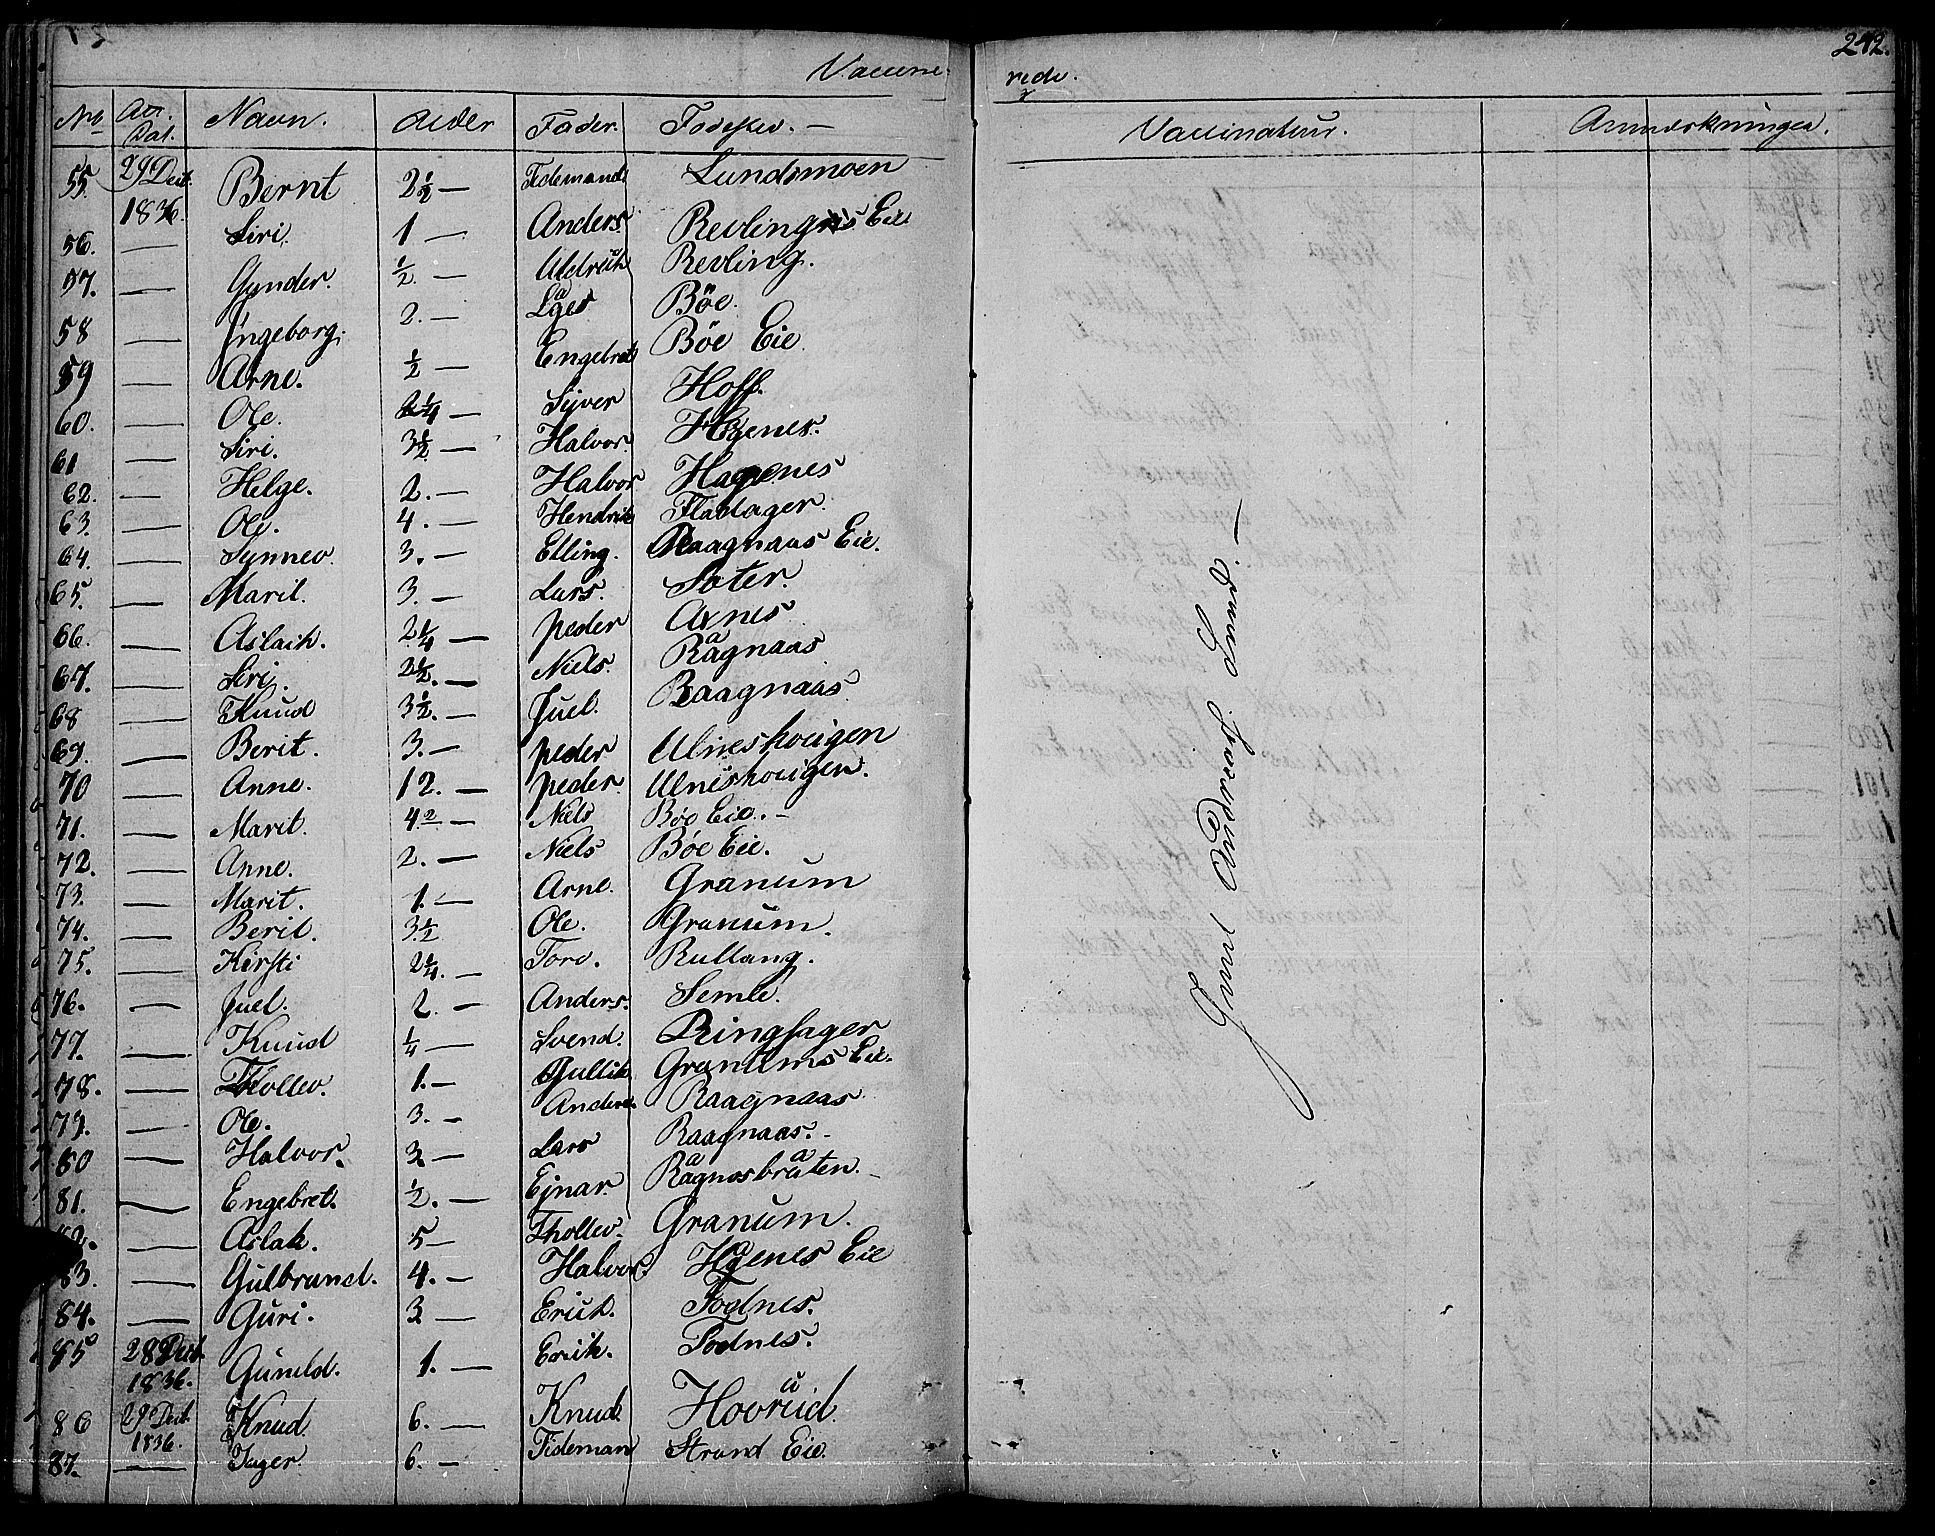 242.
Vaccine- rede.
No Aar. Dat. Navn. Alder Fader. Fødested. — Vaccinateur. Anmærkninger.
55. 29 Decb. 1836. Bernt 2½ — Tidemand Lundsmoen
56. — Siri. 1 — Anders. Revlings Eie
57. — Gunder. ½ — Aldrich Revling.
58 — Ingeborg. 2. — Låges Böe.
59 — Arne. ½ — Engebret Böe Eie.
60. — Ole. 2¼ — Syver Hoff.
61 — Siri. 3½ — Halvor. Hagenes.
62. — Helge. 2. — Halvor Hagenes
63. — Ole. 4. — Hendrik Fladager.
64. — Synnev. 3. — Elling. Raagnaas Eie.
65. — Marit. 3. — Lars. Sæter.
66. — Aslach. 2¼ — Peder Axnes
67. — Siri. 3½. — Niels. Rågnaas
68 — Knud 3½. — Juel. Raagnaas.
69. — Berit. 3. — Peder Ulneshougen
70 — Anne. 12. — Peder. Ulneshougen.
71. — Marit. 4 — Niels Bøe Eie. —
72. — Anne. 2. — Niels Bøe Eie.
73. — Marit. 1. — Arne. Granum
74. — Berit. 3½ Ole. Granum.
75. — Kirsti 2¼. — Tore. Rullang.
76. — Juel. 2. — Anders. Semle.
77. — Knud ¼ — Svend. Ringsager
78. — Thollev. 1. — Gullik Granums Eie.
79. — Ole. 3. — Anders. Raagnaas
80 — Halvor. 3 — Lars Raagnaas. —
81. — Engebret. ½. — Ejnar. Rågnasbråten. —
82. — Aslak. 5 — Thollev. Granum.
83. — Gulbrand. 4. — Halvor. Hagenes Eie
84. — Guri. 3 — Erich. Fodnes.
85 28 Decb. 1836. Gunild. 1. — Erich. Fodnes.
86 29 Decb. 1836. Knud 6. — Knud. Hovrud.
87. — Inger 6. — Tideman Strand Eie.
Juul Andreas. Lund. —